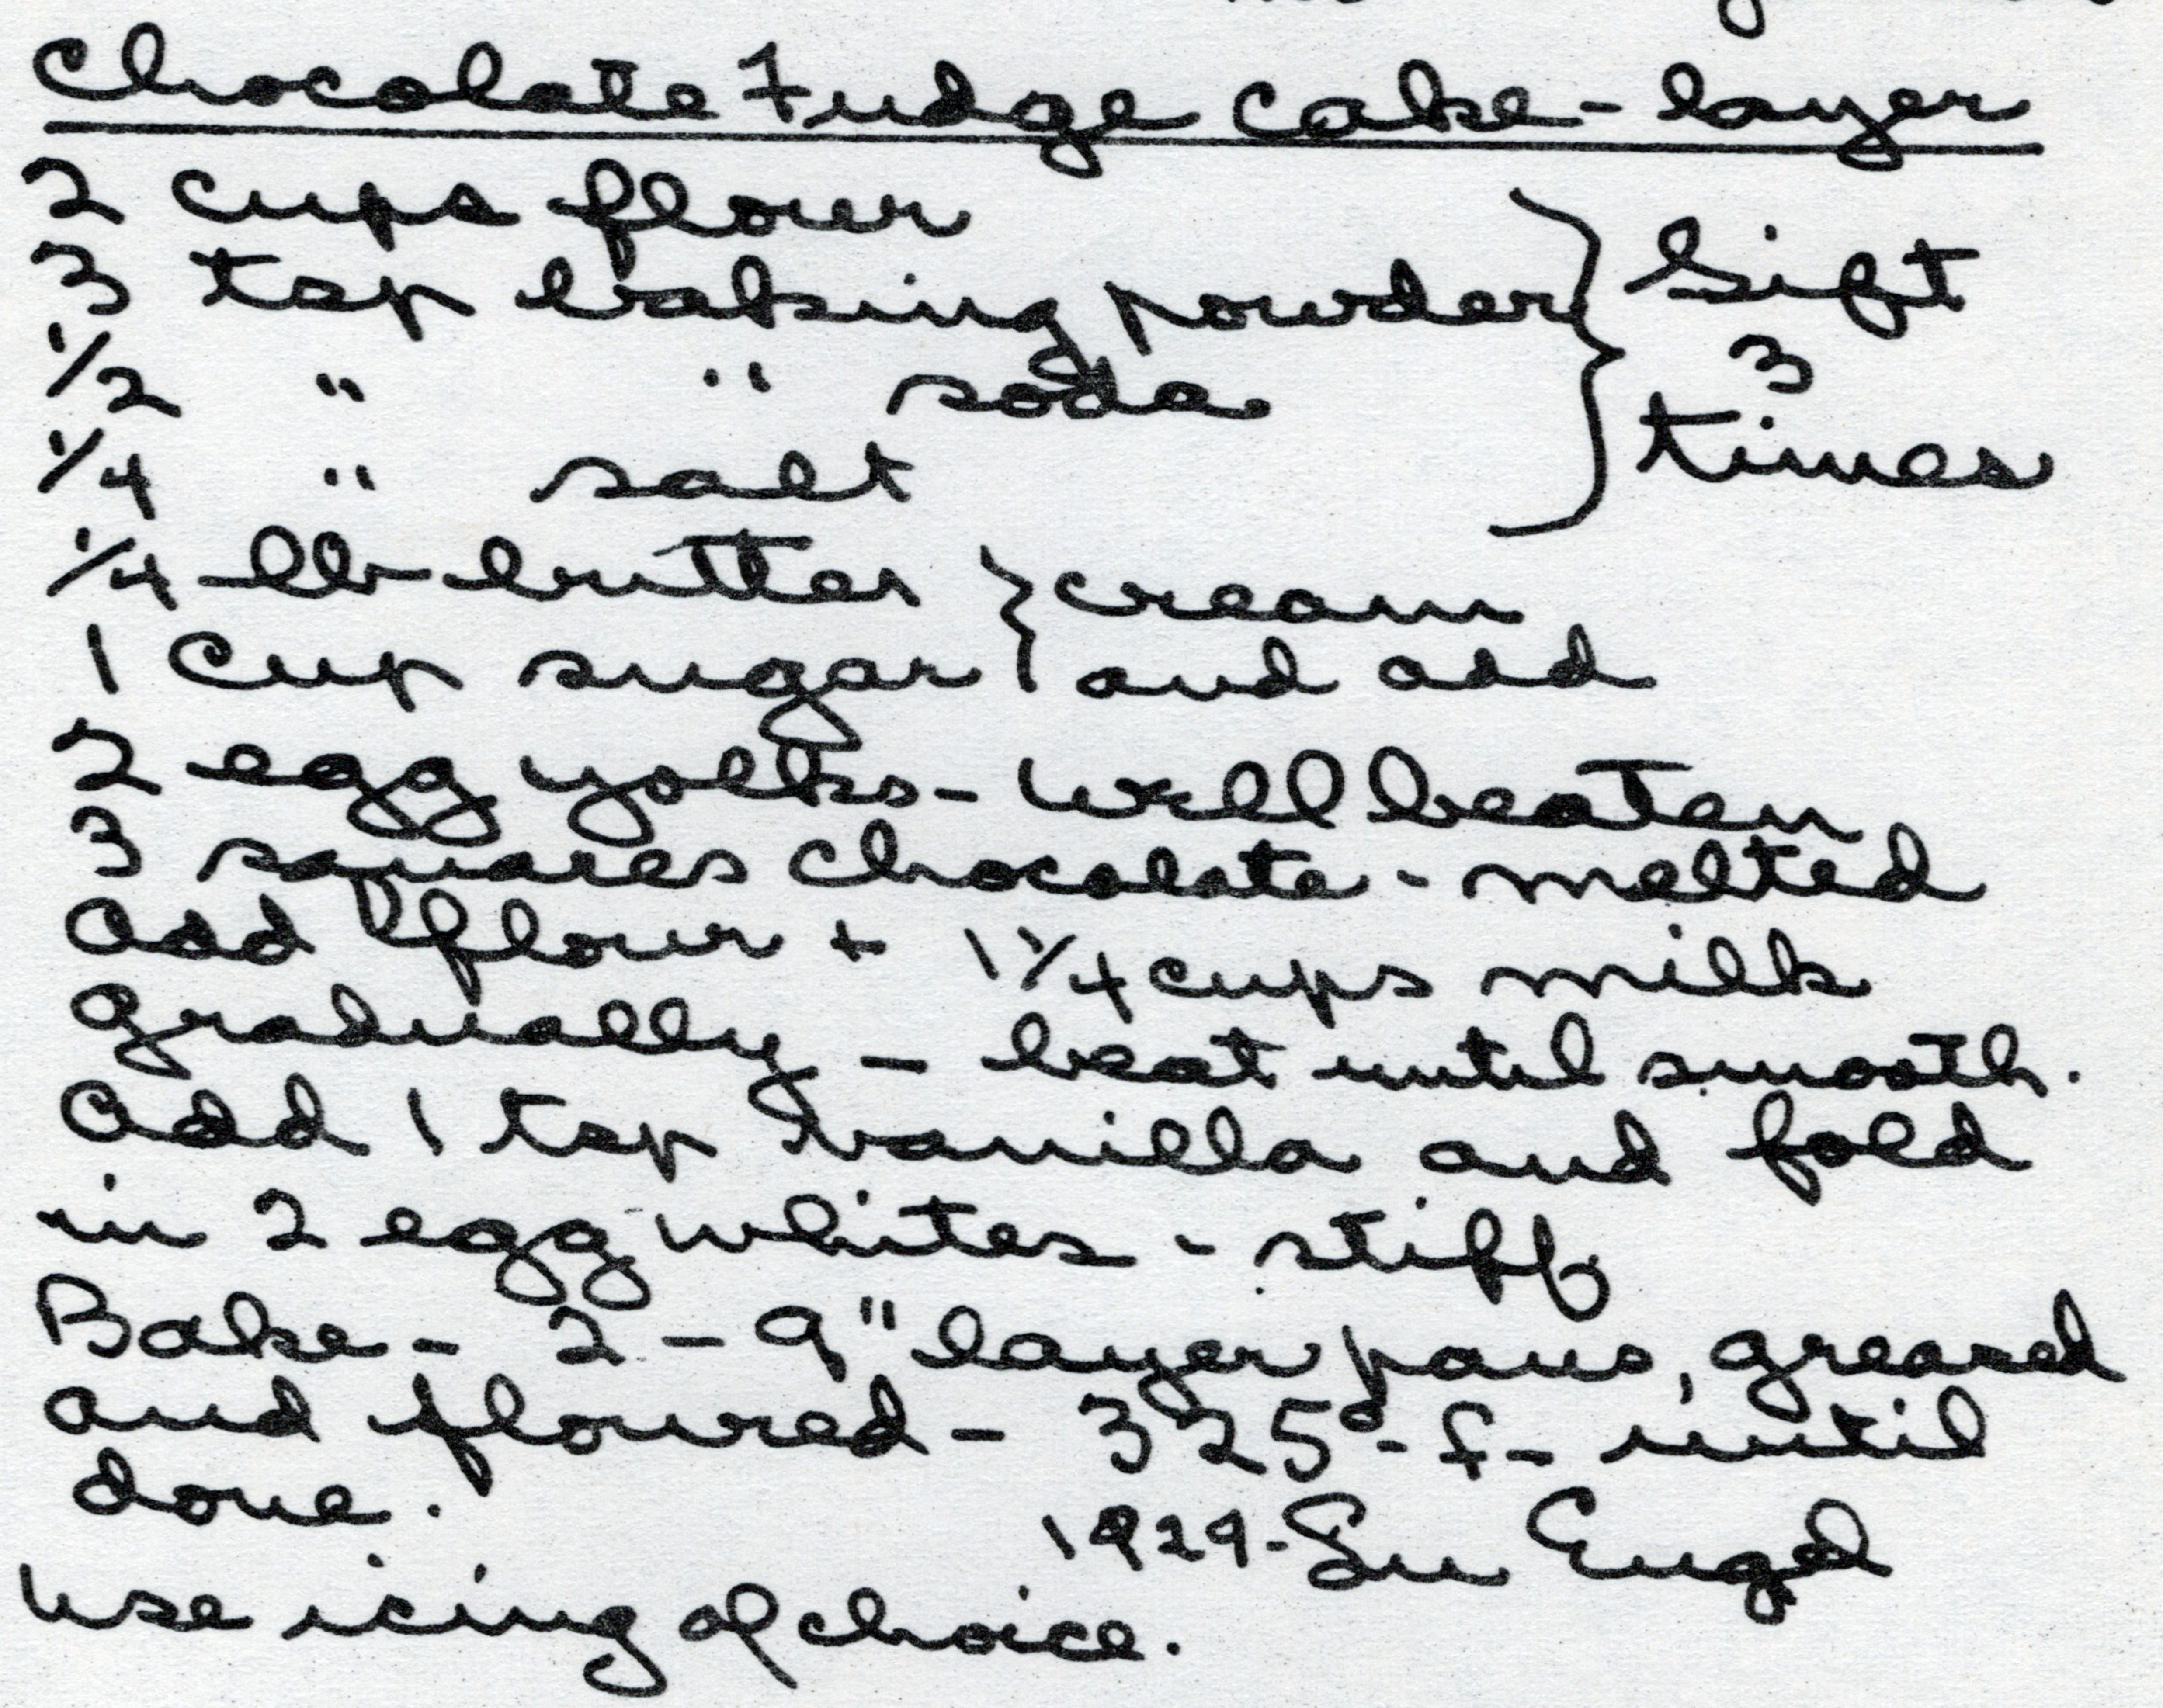 Chocolate Fudge Cake - layer
2 cups flour
3 tsp baking powder } Sift
1/2 " " soda 3
1/4 " salt times
1/4 lb butter } cream
1 cup sugar } and add
2 egg yolks - well beaten
3 squares chocolate - melted
add flour + 1 1/4 cups milk
gradually - beat until smooth.
add 1 tsp vanilla and fold
in 2 egg whites - stiff
Bake - 2 - 9" layer pans, greased
and floured - 325° - f - until
done.
1929 - Su Engel
Use icing of choice.